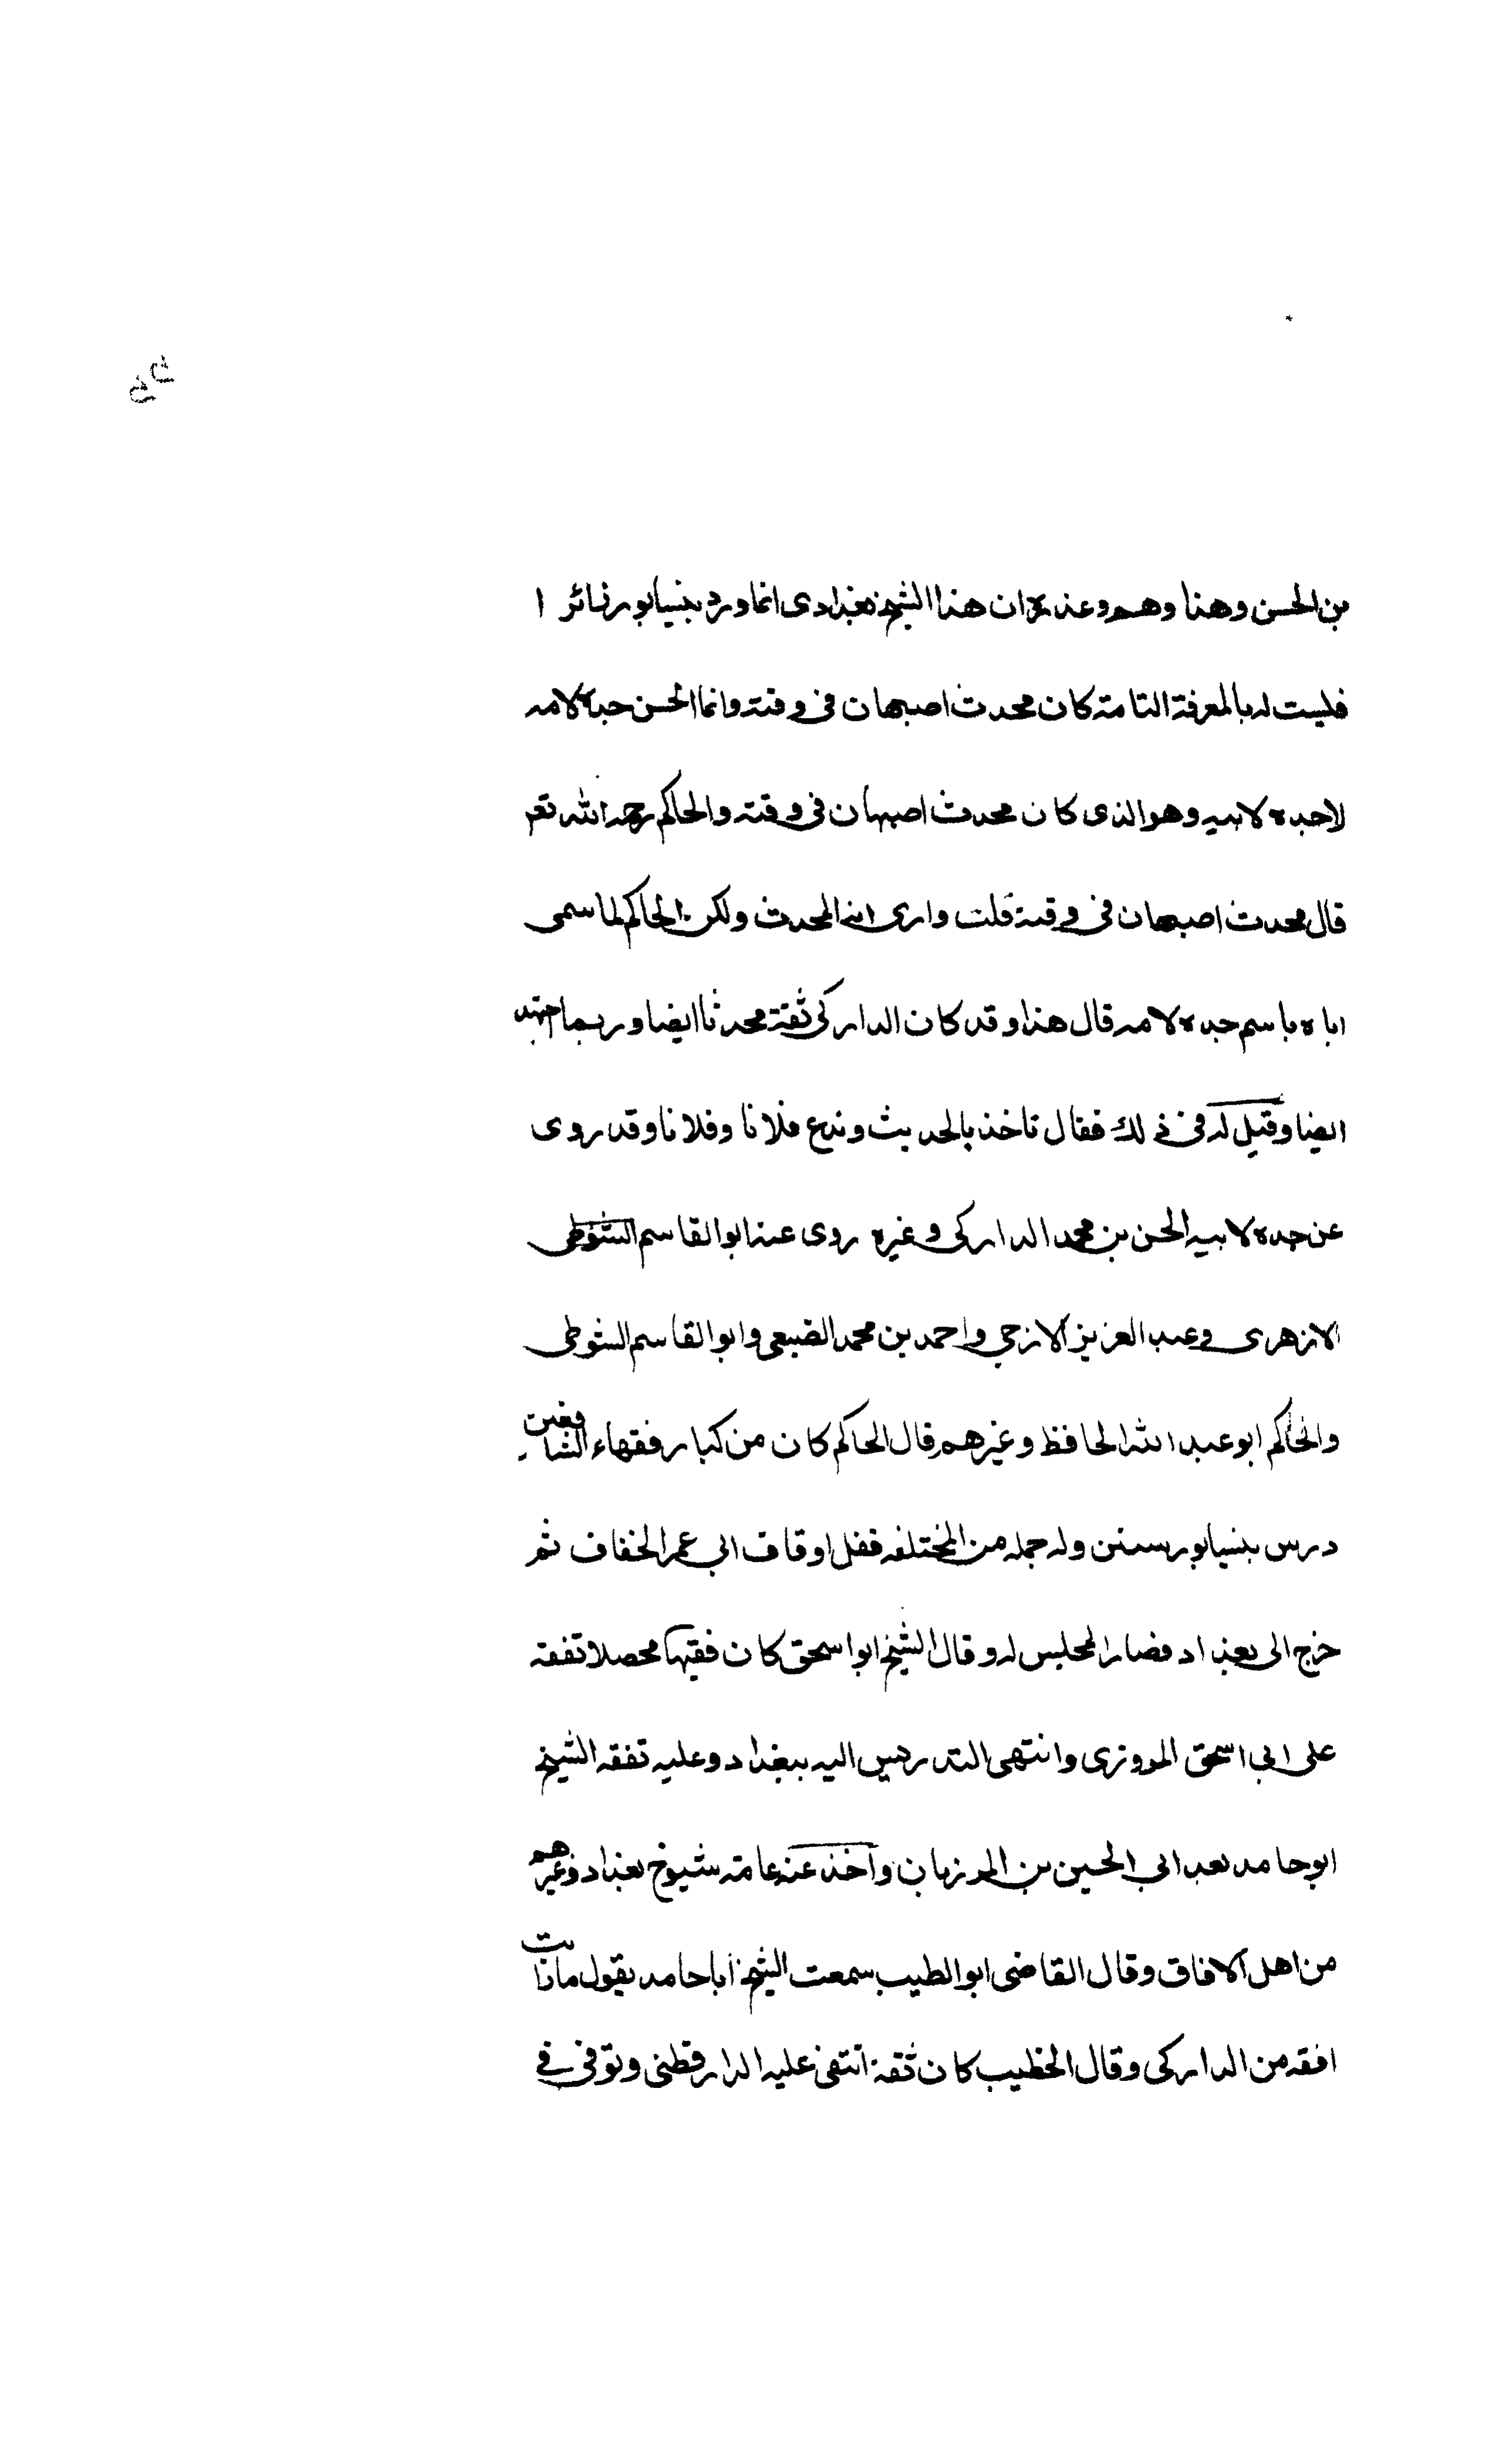 بن الحسن وهذا وهم وعذره ان هذا الشيخ بغدادى انما ورد بنيسابور زائر ا
فليست له بالمعرفة التامة كان محدث اصبهان فى وقته وانما الحسن جده لامه
لاجده لابيه وهو الذى كان محدث اصبهان فى وقته والحاكم رحمه الله نعم
قال محدث اصبهان فى وقته قلت وارى انه المحدث ولكن الحاكم لما سمى
اباه باسم جده لامه قال هذا وقد كان الداركى ثقة محدثا ايضا وربما اجتهد
ايضا وقيل له فى ذلك فقال تاخذ بالحديث وندع فلانا وفلانا وقد روى
عن جده لابيه الحسن بن محمد الداركى وغيره روى عنه ابوالقاسم الشوطى
الازهرى وعبد العزيز الازجى واحمد بن محمد الضبعى وابو القاسم الشوطى
والحاكم ابو عبد الله الحافظ وغيرهم قال الحاكم كان من كبار فقهاء الشافعيين
درس بنيسابور سنين وله جمله من المختلفه اوقاف ابي عمر الخفاف ثم
خرج الى بغداد فصار المجلس له وقال الشيخ ابو اسحق كان فقيها محصلا تفقه
على ابي اسحق المروزى وانتهى التدريس اليه ببغداد وعليه تفقه الشيخ
ابو حامد بعد ابي الحسين بن المرزبان وأخذ عنه عامة شيوخ بغداد وغيرهم
من اهل الافاق وقال القاضى ابو الطيب سمعت الشيخ أبا حامد يقول مارأيت
افقه من الداركى وقال الخطيب كان ثقة انتقى عليه الدارقطنى وتوفى فى